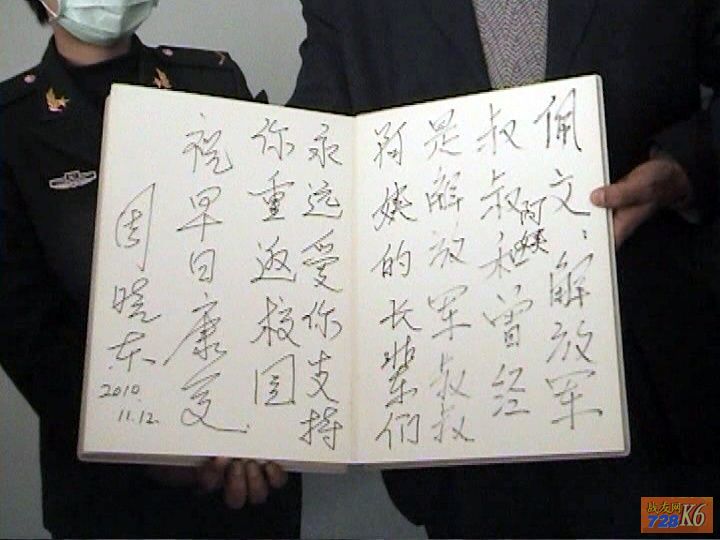 佩文:解放军
叔叔阿姨和曾经
是解放军叔叔
阿姨的长辈们
永远爱你支持
你重返校园
祝早日康复
周晓东
2010.
11.12.
战友网
728K6